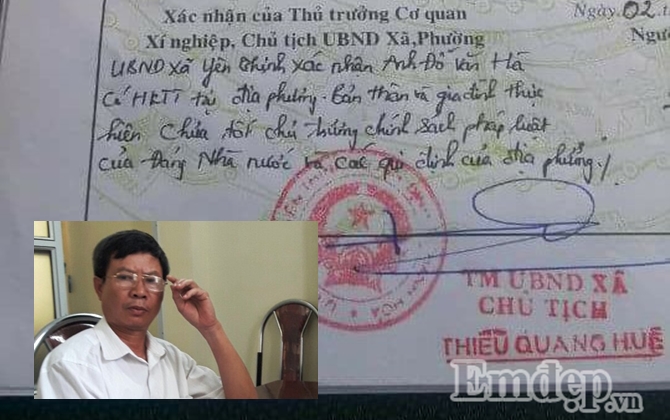 Xác nhận của Thủ trưởng Cơ quan
Xí nghiệp, Chủ tịch UBND Xã,Phường
Ngày.02.t
Ngườ
UBND xã Yên Thịnh xác nhận Anh Đỗ Văn Hà
Có HKTT tại địa phương. Bản thân và gia đình thực
hiện Chưa tốt chủ trương chính sách pháp luật
của Đảng Nhà nước và các qui định của địa phương./
TM UBND XÃ
CHỦ TỊCH
THIỀU QUANG HUÊ
Emdẹp.vn